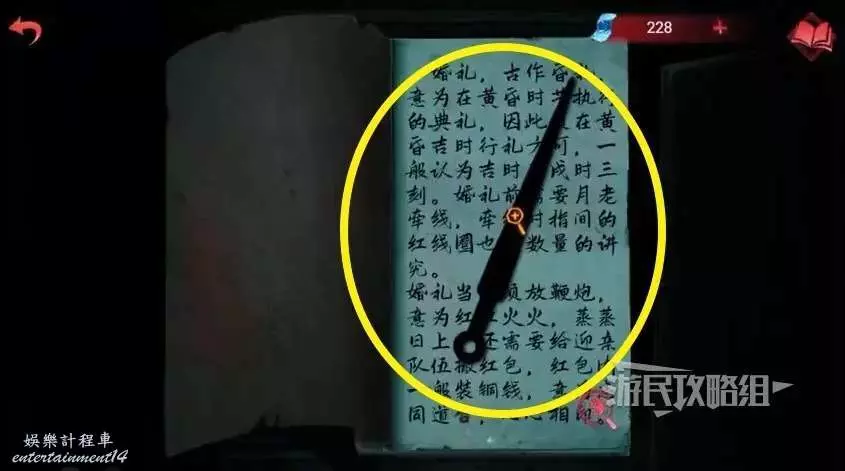 228
婚礼，古作昏礼，
意为在黄昏时
执行
的典礼，因此
在黄
昏吉时行礼方可，一
般认为吉时
戌时三
刻。婚礼前需要月老
牵线，牵
时指间的
红线圈也
数量的讲
究。
婚礼当
须放鞭炮，
意为红红火火，蒸蒸
日上
还需要给迎亲
队伍撒红包，红包
一般装铜钱，意
同道合，
心相印。
游民攻略组
娛樂計程車
entertainment14